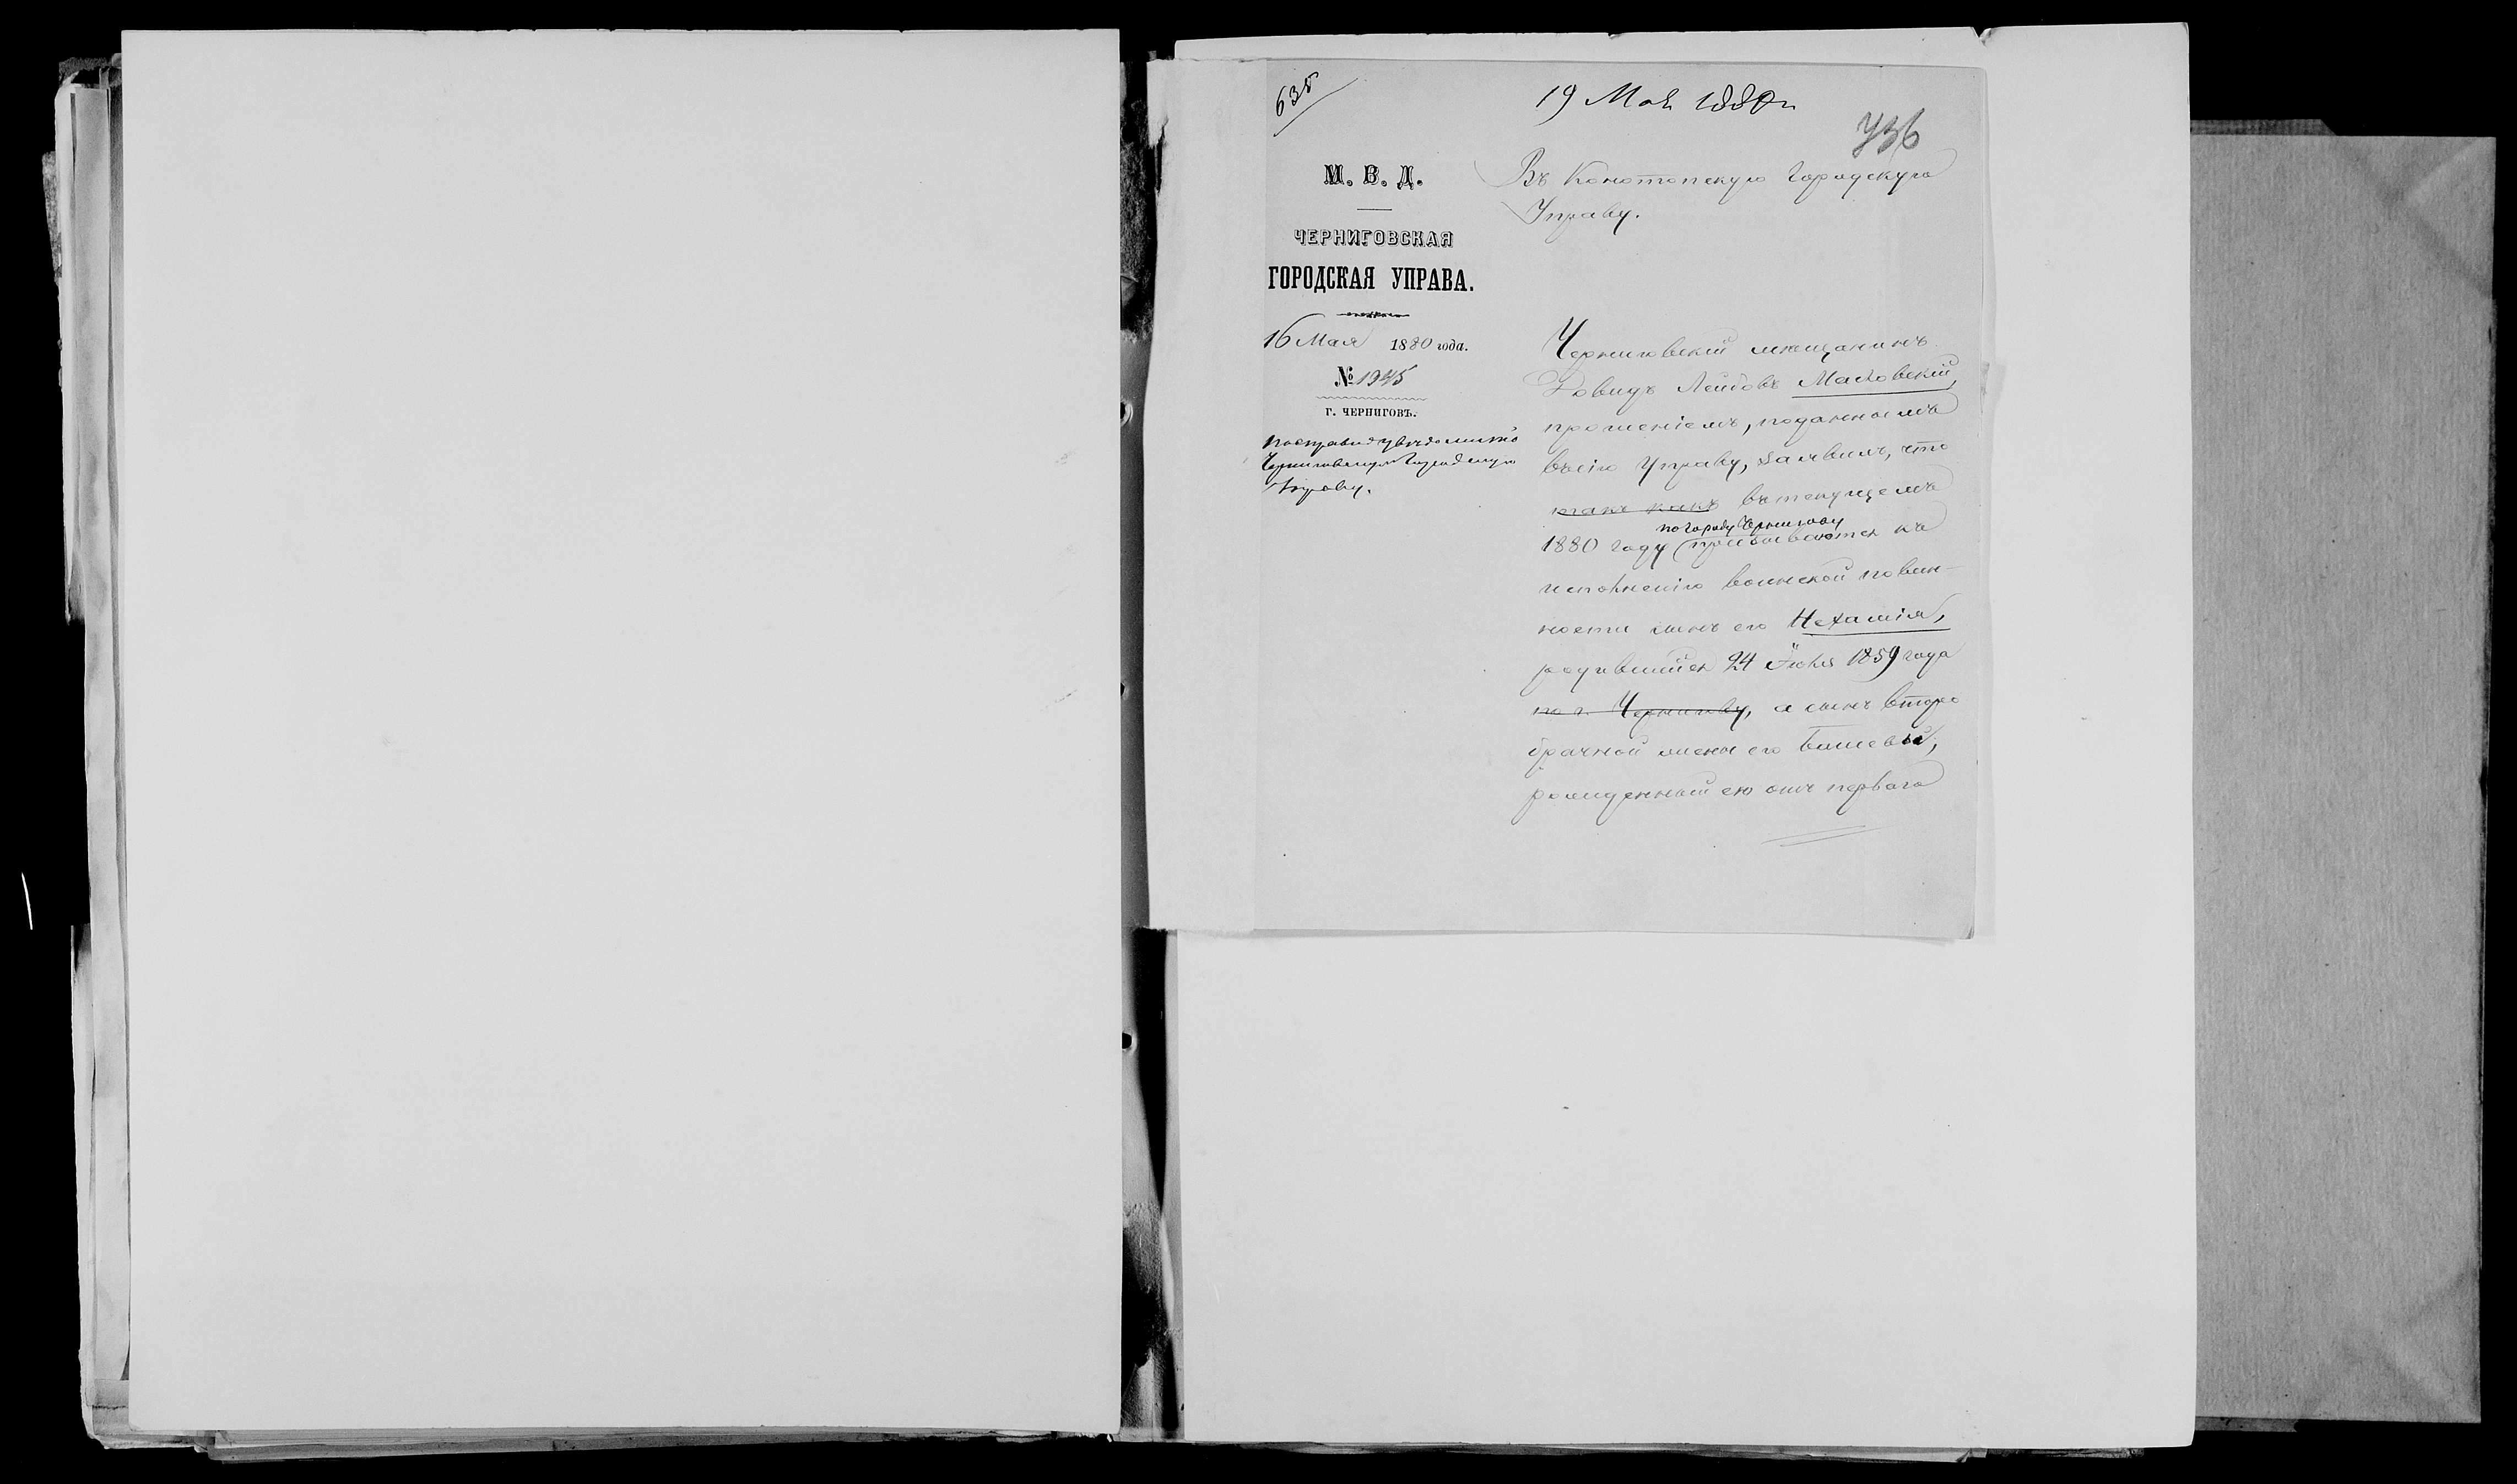 635
19 Мая 1880 г
736
М. В. Д.
ЧЕРНИГОВСКАЯ
ГОРОДСКАЯ УПРАВА.
16 Мая 1880 года.
№ 1945
Г. ЧЕРНИГОВЪ.
увѣдомить
Черниговскую Городскую
Управу.
Въ Конотопскую Городскую
Управу.
Черниговскій мѣщанинъ
Довидъ Лейбовъ Масловскій,
прошеніемъ, поданнымъ
въ сію Управу, заявилъ, что
такъ какъ въ текущемъ
по городу Чернигову
1880 году призываются къ
исполненію воинской повин-
ности сынъ его Нехамія,
родившійся 24 Іюля 1859 года
по г. Чернигову, а сынъ второ
брачной жены его
рожденный ею отъ перваго